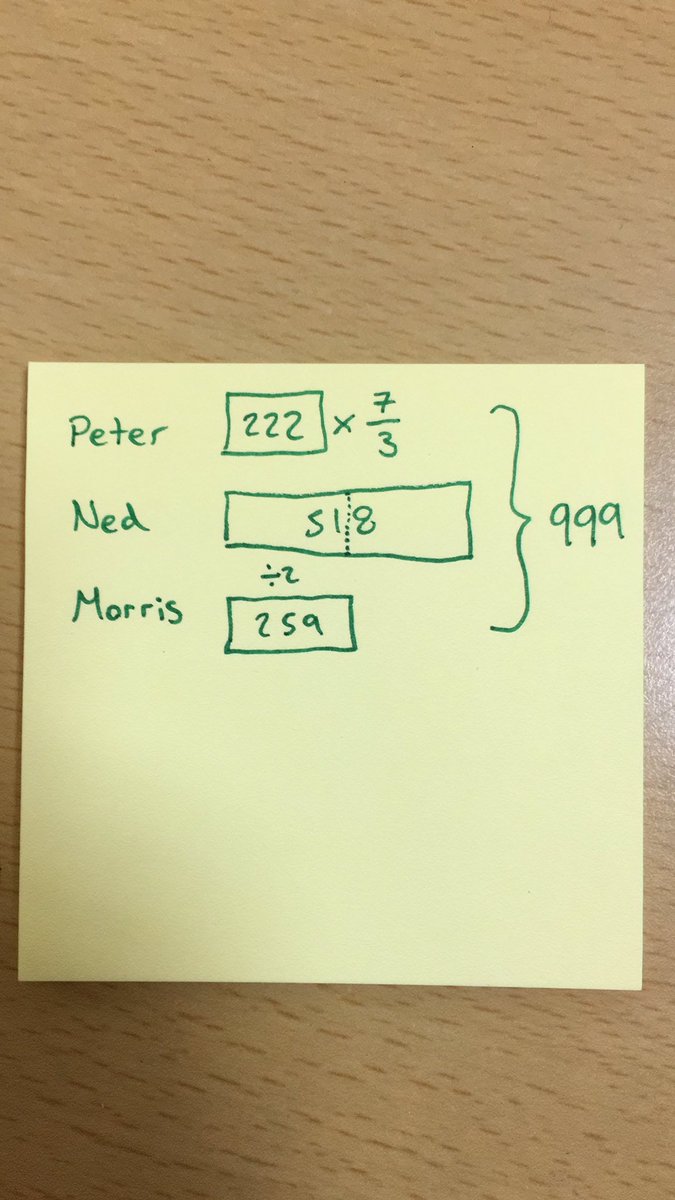 Peter 222 × 7/3
Ned 518
÷2
Morris 259
999